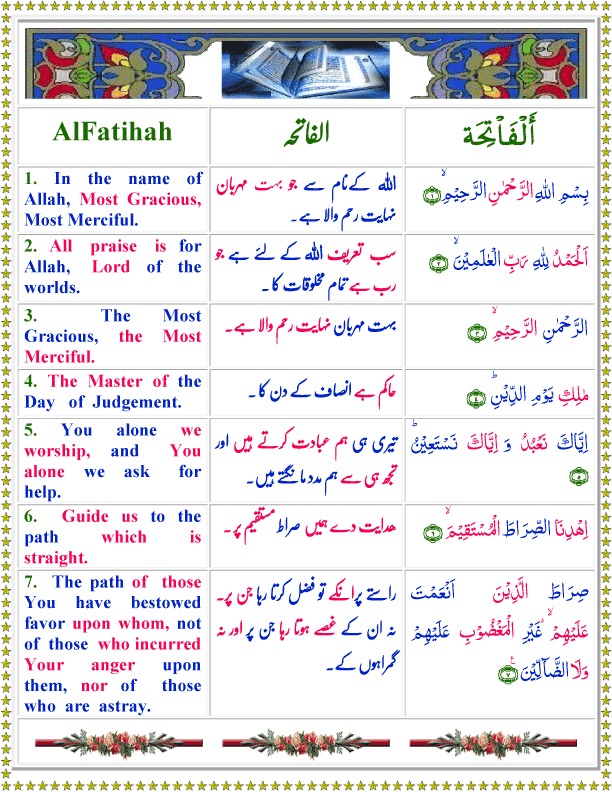 AlFatihah
الفاتحہ
اَلْفَاتِحَة
1. In the name of
Allah, Most Gracious,
Most Merciful.
اللہ کےنام سے جو بہت مہربان
نہایت رحم والا ہے۔
بِسْمِ اللهِ الرَّحْمٰنِ الرَّحِيْمِۙ ﴿۱﴾
2. All praise is for
Allah, Lord of the
worlds.
سب تعریف اللہ کے لئے ہے جو
رب ہے تمام مخلوقات کا۔
اَلْحَمْدُ لِلّٰهِ رَبِّ الْعٰلَمِيْنَۙ ﴿۲﴾
3. The Most
Gracious, the Most
Merciful.
بہت مہربان نہایت رحم والا ہے۔
الرَّحْمٰنِ الرَّحِيْمِۙ ﴿۳﴾
4. The Master of the
Day of Judgement.
حاکم ہے انصاف کے دن کا۔
مٰلِكِ يَوْمِ الدِّيْنِؕ ﴿٤﴾
5. You alone we
worship, and You
alone we ask for
help.
تیری ہی ہم عبادت کرتے ہیں اور
تجھ ہی سے ہم مدد مانگتے ہیں۔
اِيَّاكَ نَعْبُدُ وَ اِيَّاكَ نَسْتَعِيْنُؕ
﴿۵﴾
6. Guide us to the
path which is
straight.
ھدایت دے ہمیں صراط مستقیم پر۔
اِهْدِنَا الصِّرَاطَ الْمُسْتَقِيْمَۙ ﴿٦﴾
7. The path of those
You have bestowed
favor upon whom, not
of those who incurred
Your anger upon
them, nor of those
who are astray.
راستے پرانکے تو فضل کرتا رہا جن پر۔
نہ ان کے غصے ہوتا رہا جن پر اور نہ
گمراہوں کے۔
صِرَاطَ الَّذِيْنَ اَنْعَمْتَ
عَلَيْهِمْ ۙ غَيْرِ الْمَغْضُوْبِ عَلَيْهِمْ
وَلَا الضَّآلِّيْنَ ﴿۷﴾